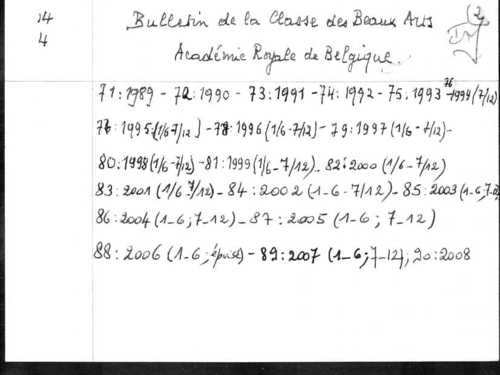 14
4
Bulletin de la Classe des Beaux Arts
Académie Royale de Belgique
71:1989 - 72:1990 - 73:1991 - 74:1992 - 75:1993 - 76 1994 (7/12)
1995 (1/6-7/12) - 78:1996 (1/6-7/12) - 79:1997 (1/6-7/12) -
80:1998 (1/6-7/12) - 81:1999 (1/6-7/12) - 82:2000 (1/6-7/12)
83:2001 (1/6 7/12) - 84:2002 (1-6-7/12) - 85:2003 (1-6;
86:2004 (1-6; 7-12) - 87:2005 (1-6; 7-12)
88:2006 (1-6; épuisé) - 89:2007 (1-6; 7-12), 90:2008